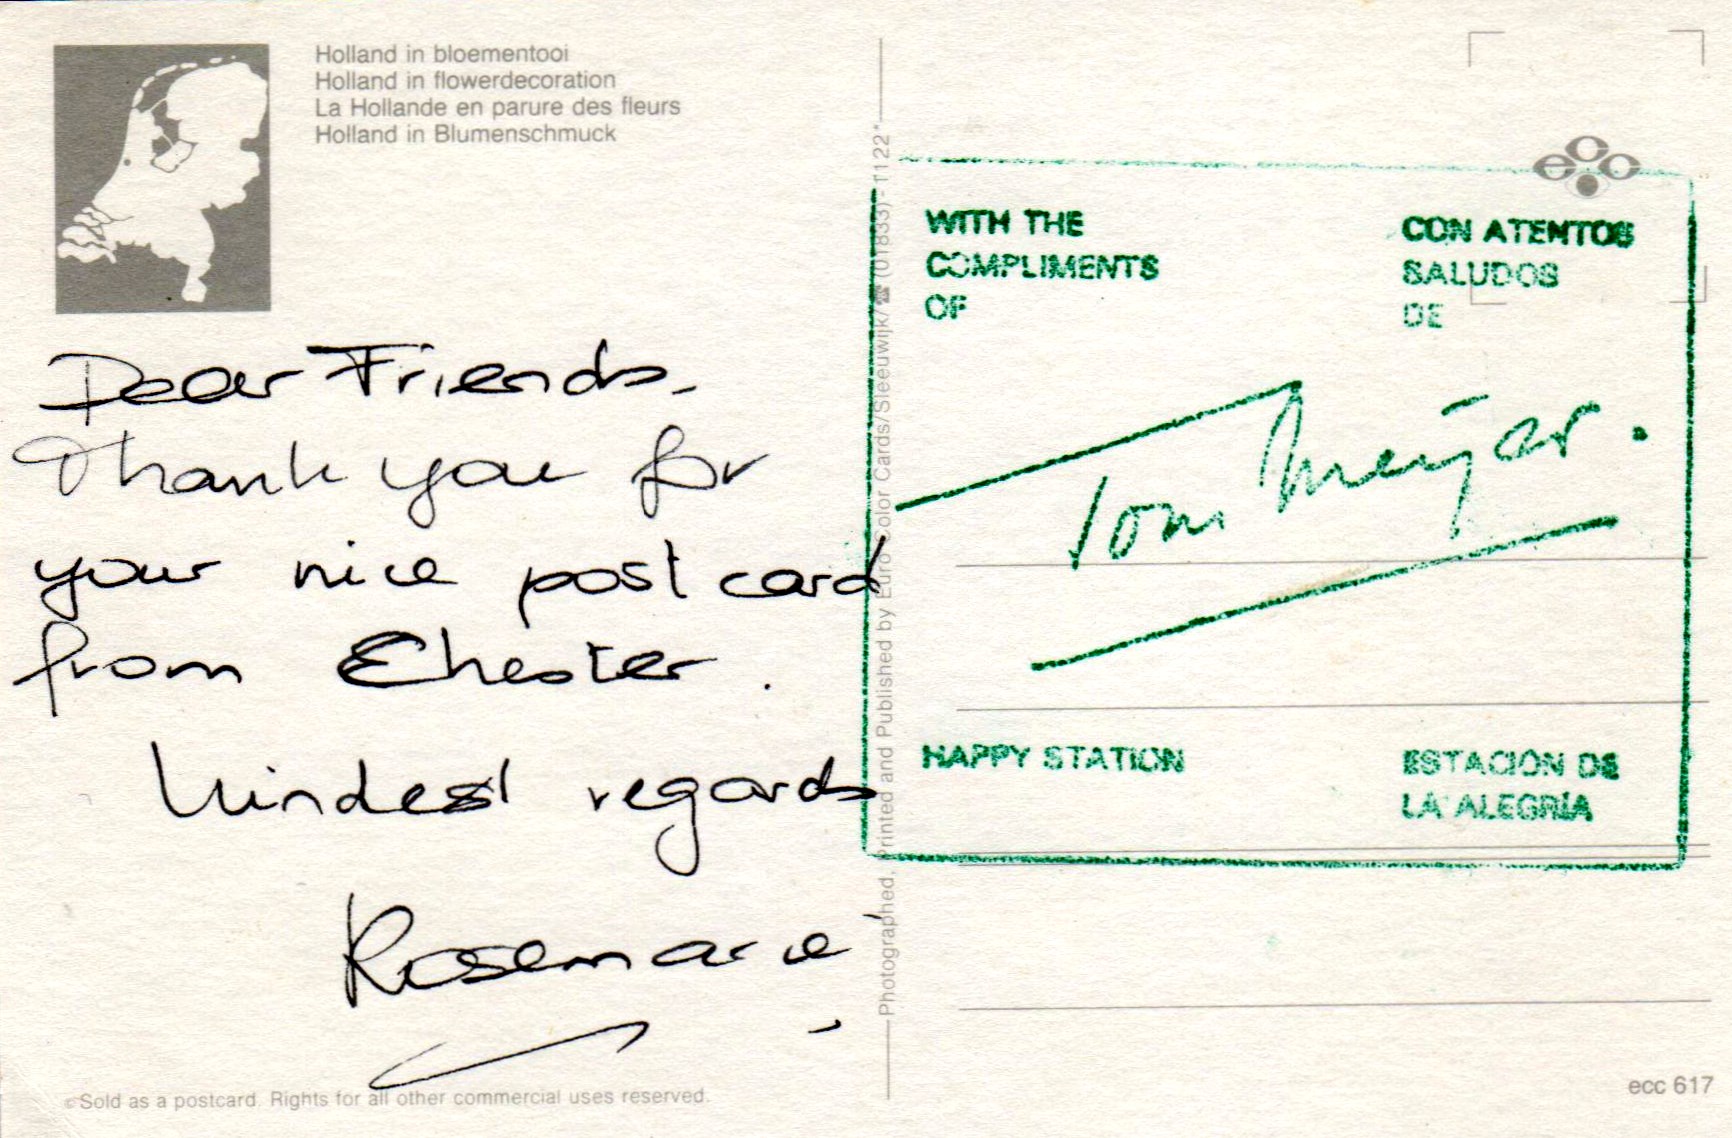 Holland in bloementooi
Holland in flowerdecoration
La Hollande en parure des fleurs
Holland in Blumenschmuck
Dear Friends,
Thank you for
your nice post card
from Chester.
Kindest regards
Rosemarie
©Sold as a postcard. Rights for all other commercial uses reserved.
Photographed, Printed and Published by Euro Color Cards/Sleeuwijk/ ☎ (01833) - 1122*
eco
WITH THE
COMPLIMENTS
OF
CON ATENTOS
SALUDOS
DE
Tom Meijer.
HAPPY STATION
ESTACIÓN DE
LA ALEGRÍA
ecc 617